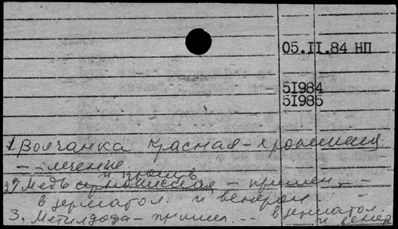 05.II.84 НП
51984
51985
1. Волчанка красная -
лечение
2. Медь - примен. -
в дерматол. и венерол
3. Метилдофа - примен. -- в дерматол.
и венер